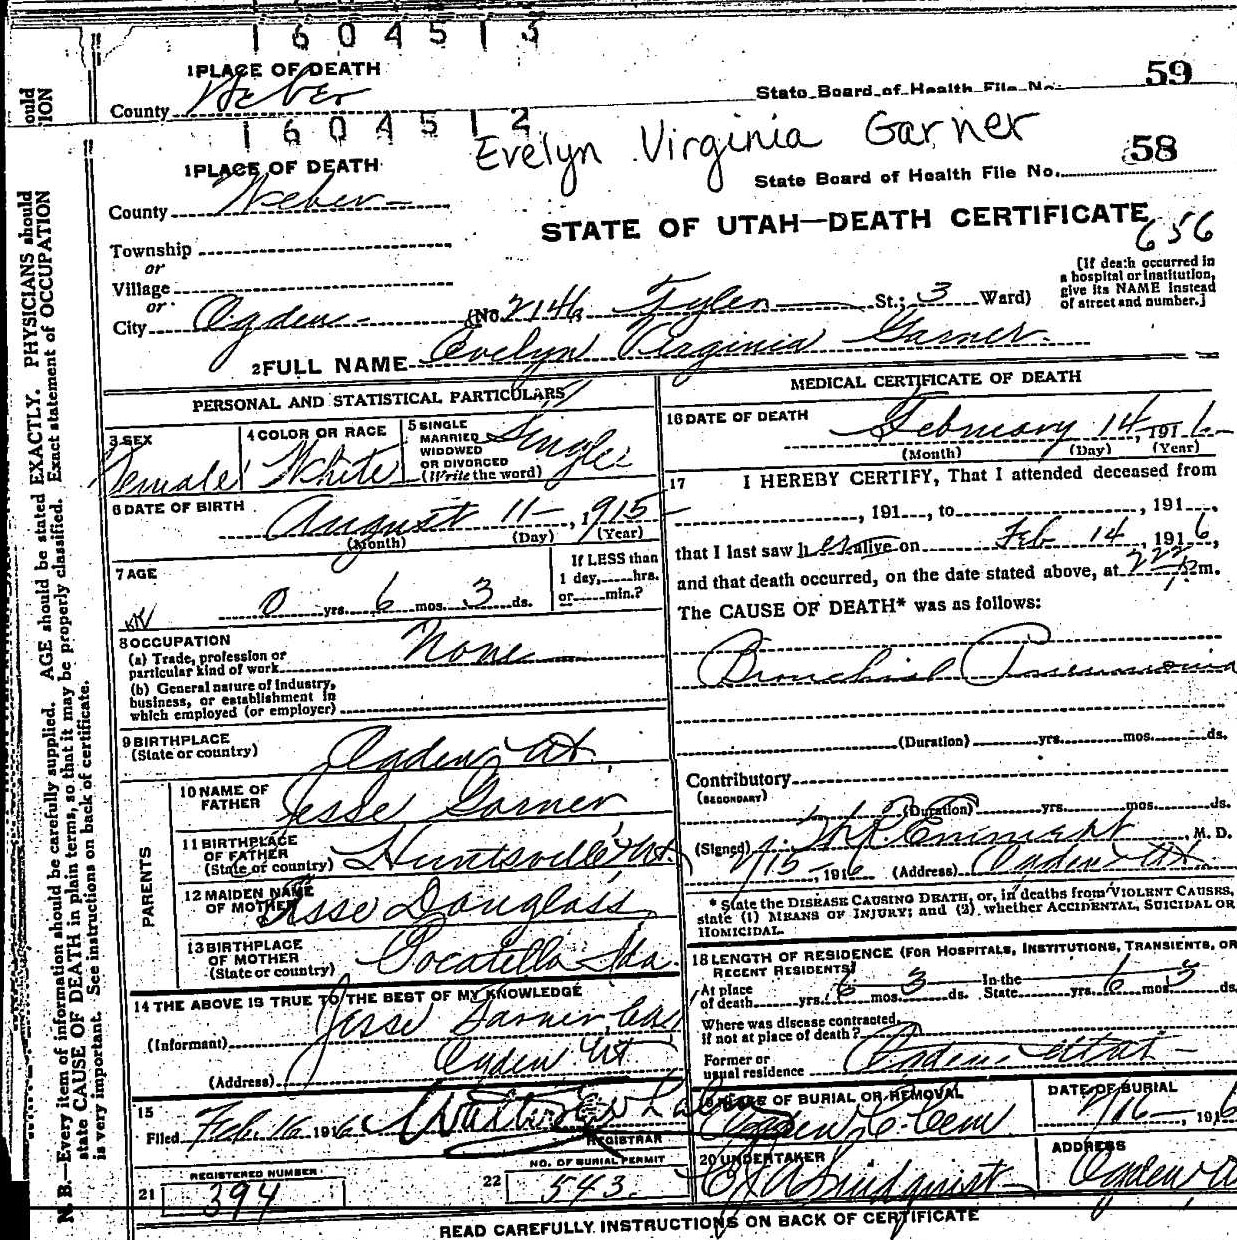 1604513
1 PLACE OF DEATH
County Weber
State Board of Health File No. 59
1604512
Evelyn Virginia Garner
1 PLACE OF DEATH
State Board of Health File No. 58
County Weber
STATE OF UTAH—DEATH CERTIFICATE
656
Township
or
Village
or
City Ogden (No. 2146 Tyler St.; 3 Ward)
[If death occurred in
a hospital or institution,
give its NAME instead
of street and number.]
2 FULL NAME Evelyn Virginia Garner
PERSONAL AND STATISTICAL PARTICULARS
3 SEX
Female
4 COLOR OR RACE
White
5 SINGLE
MARRIED
WIDOWED
OR DIVORCED
(Write the word)
Single
6 DATE OF BIRTH
August 11, 1915
(Month) (Day) (Year)
7 AGE
0 yrs. 6 mos. 3 ds.
If LESS than
1 day, hrs.
or min.?
8 OCCUPATION
(a) Trade, profession or
particular kind of work None
(b) General nature of industry,
business, or establishment in
which employed (or employer)
9 BIRTHPLACE
(State or country) Ogden Ut.
PARENTS
10 NAME OF
FATHER Jesse Garner
11 BIRTHPLACE
OF FATHER
(State or country) Huntsville Ut.
12 MAIDEN NAME
OF MOTHER Douglass
13 BIRTHPLACE
OF MOTHER
(State or country) Pocatello Ida.
14 THE ABOVE IS TRUE TO THE BEST OF MY KNOWLEDGE
(Informant) Jesse Garner
(Address) Ogden Ut
15
Filed Feb. 16 1916
REGISTRAR
REGISTERED NUMBER
21 394
NO. OF BURIAL PERMIT
22 543.
MEDICAL CERTIFICATE OF DEATH
16 DATE OF DEATH
February 14, 1916
(Month) (Day) (Year)
17 I HEREBY CERTIFY, That I attended deceased from
, 191 , to , 191 ,
that I last saw her alive on Feb 14, 1916,
and that death occurred, on the date stated above, at m.
The CAUSE OF DEATH* was as follows:
Bronchial Pneumonia
(Duration) yrs. mos. ds.
Contributory
(SECONDARY)
(Duration) yrs. mos. ds.
(Signed) , M. D.
2/15-, 1916 (Address) Ogden Ut.
* State the DISEASE CAUSING DEATH, or, in deaths from VIOLENT CAUSES,
state (1) MEANS OF INJURY; and (2) whether ACCIDENTAL, SUICIDAL OR
HOMICIDAL.
18 LENGTH OF RESIDENCE (FOR HOSPITALS, INSTITUTIONS, TRANSIENTS, OR
RECENT RESIDENTS)
At place
of death yrs. 6 mos. 3 ds. In the
State yrs. 6 mos. 3 ds.
Where was disease contracted,
if not at place of death?
Former or
usual residence Ogden Utah
19 PLACE OF BURIAL OR REMOVAL
Ogden C. Cem
DATE OF BURIAL
2/16-, 1916
20 UNDERTAKER
Lindquist
ADDRESS
Ogden
READ CAREFULLY INSTRUCTIONS ON BACK OF CERTIFICATE
N. B.—Every item of information should be carefully supplied. AGE should be stated EXACTLY. PHYSICIANS should
state CAUSE OF DEATH in plain terms, so that it may be properly classified. Exact statement of OCCUPATION
is very important. See instructions on back of certificate.